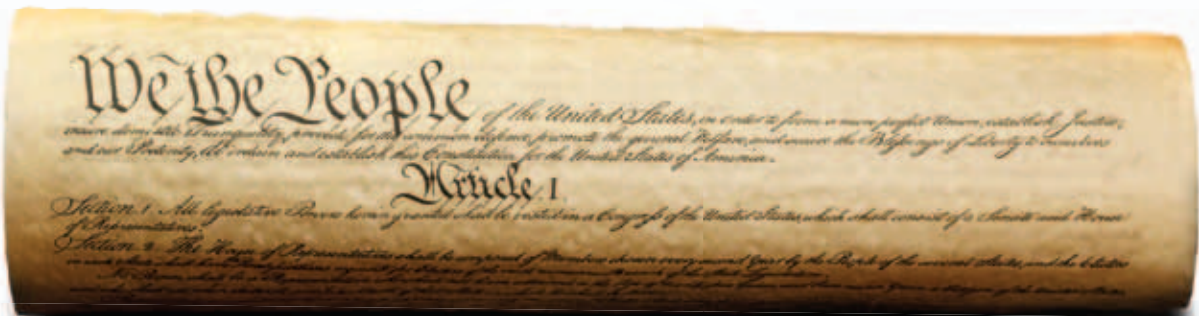 We the People of the United States, in order to form a more perfect Union, establish Justice,
insure domestic Tranquility, provide for the common defence, promote the general Welfare, and secure the Blessings of Liberty to ourselves
and our Posterity, do ordain and establish this Constitution for the United States of America.
Article I.
Section 1 All legislative Powers herein granted shall be vested in a Congress of the United States, which shall consist of a Senate and House
of Representatives.
Section 2 The House of Representatives shall be composed of Members chosen every second Year by the People of the several States, and the Electors